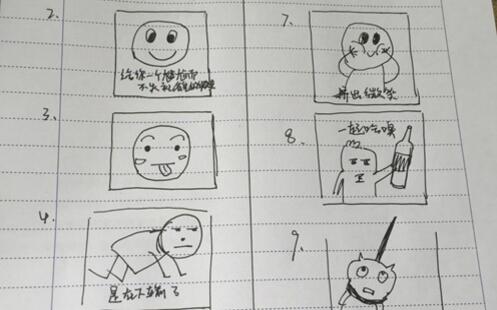 2.
给你一个尴尬而
不失礼貌的微笑
3.
4.
是在下输了
7.
挤出微笑
8.
一起吃嗅
9.